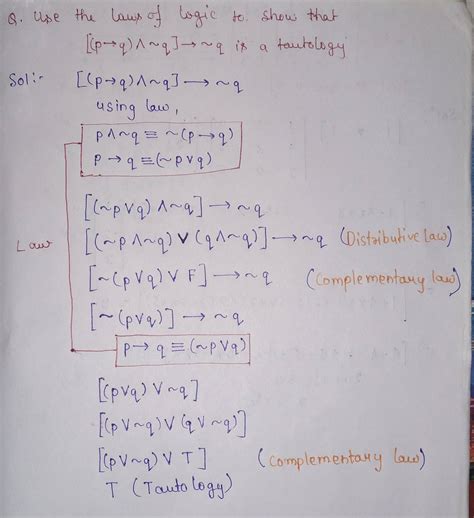 Q. Use the laws of logic to show that
[(p→q)∧~q]→~q is a tautology
Sol:- [(p→q)∧~q]→~q
using law,
p∧~q ≡ ~(p→q)
p→q ≡(~p∨q)
Law
[(~p∨q)∧~q]→~q
[(~p∧~q)∨(q∧~q)]→~q (Distributive law)
[~(p∨q)∨F]→~q (Complementary law)
[~(p∨q)]→~q
p→q ≡(~p∨q)
[(p∨q)∨~q]
[(p∨~q)∨(q∨~q)]
[(p∨~q)∨T] (Complementary law)
T (Tautology)